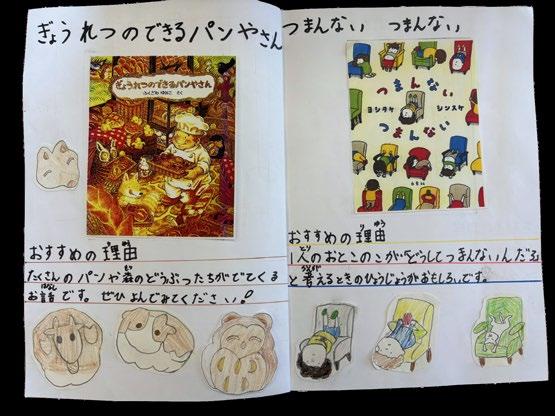 ぎょうれつのできるパンやさん
ぎょうれつのできるパンやさん
ふくざわ ゆみこ さく
おすすめの理由
たくさんのパンや森のどうぶつたちがでてくる
お話です。ぜひよんでみてください。
つまんない つまんない
つまんない
ヨシタケ シンスケ
つまんない
おすすめの理由
1人のおとこのこが「どうしてつまんないんだろ」
と考えるときのひょうじょうがおもしろいです。